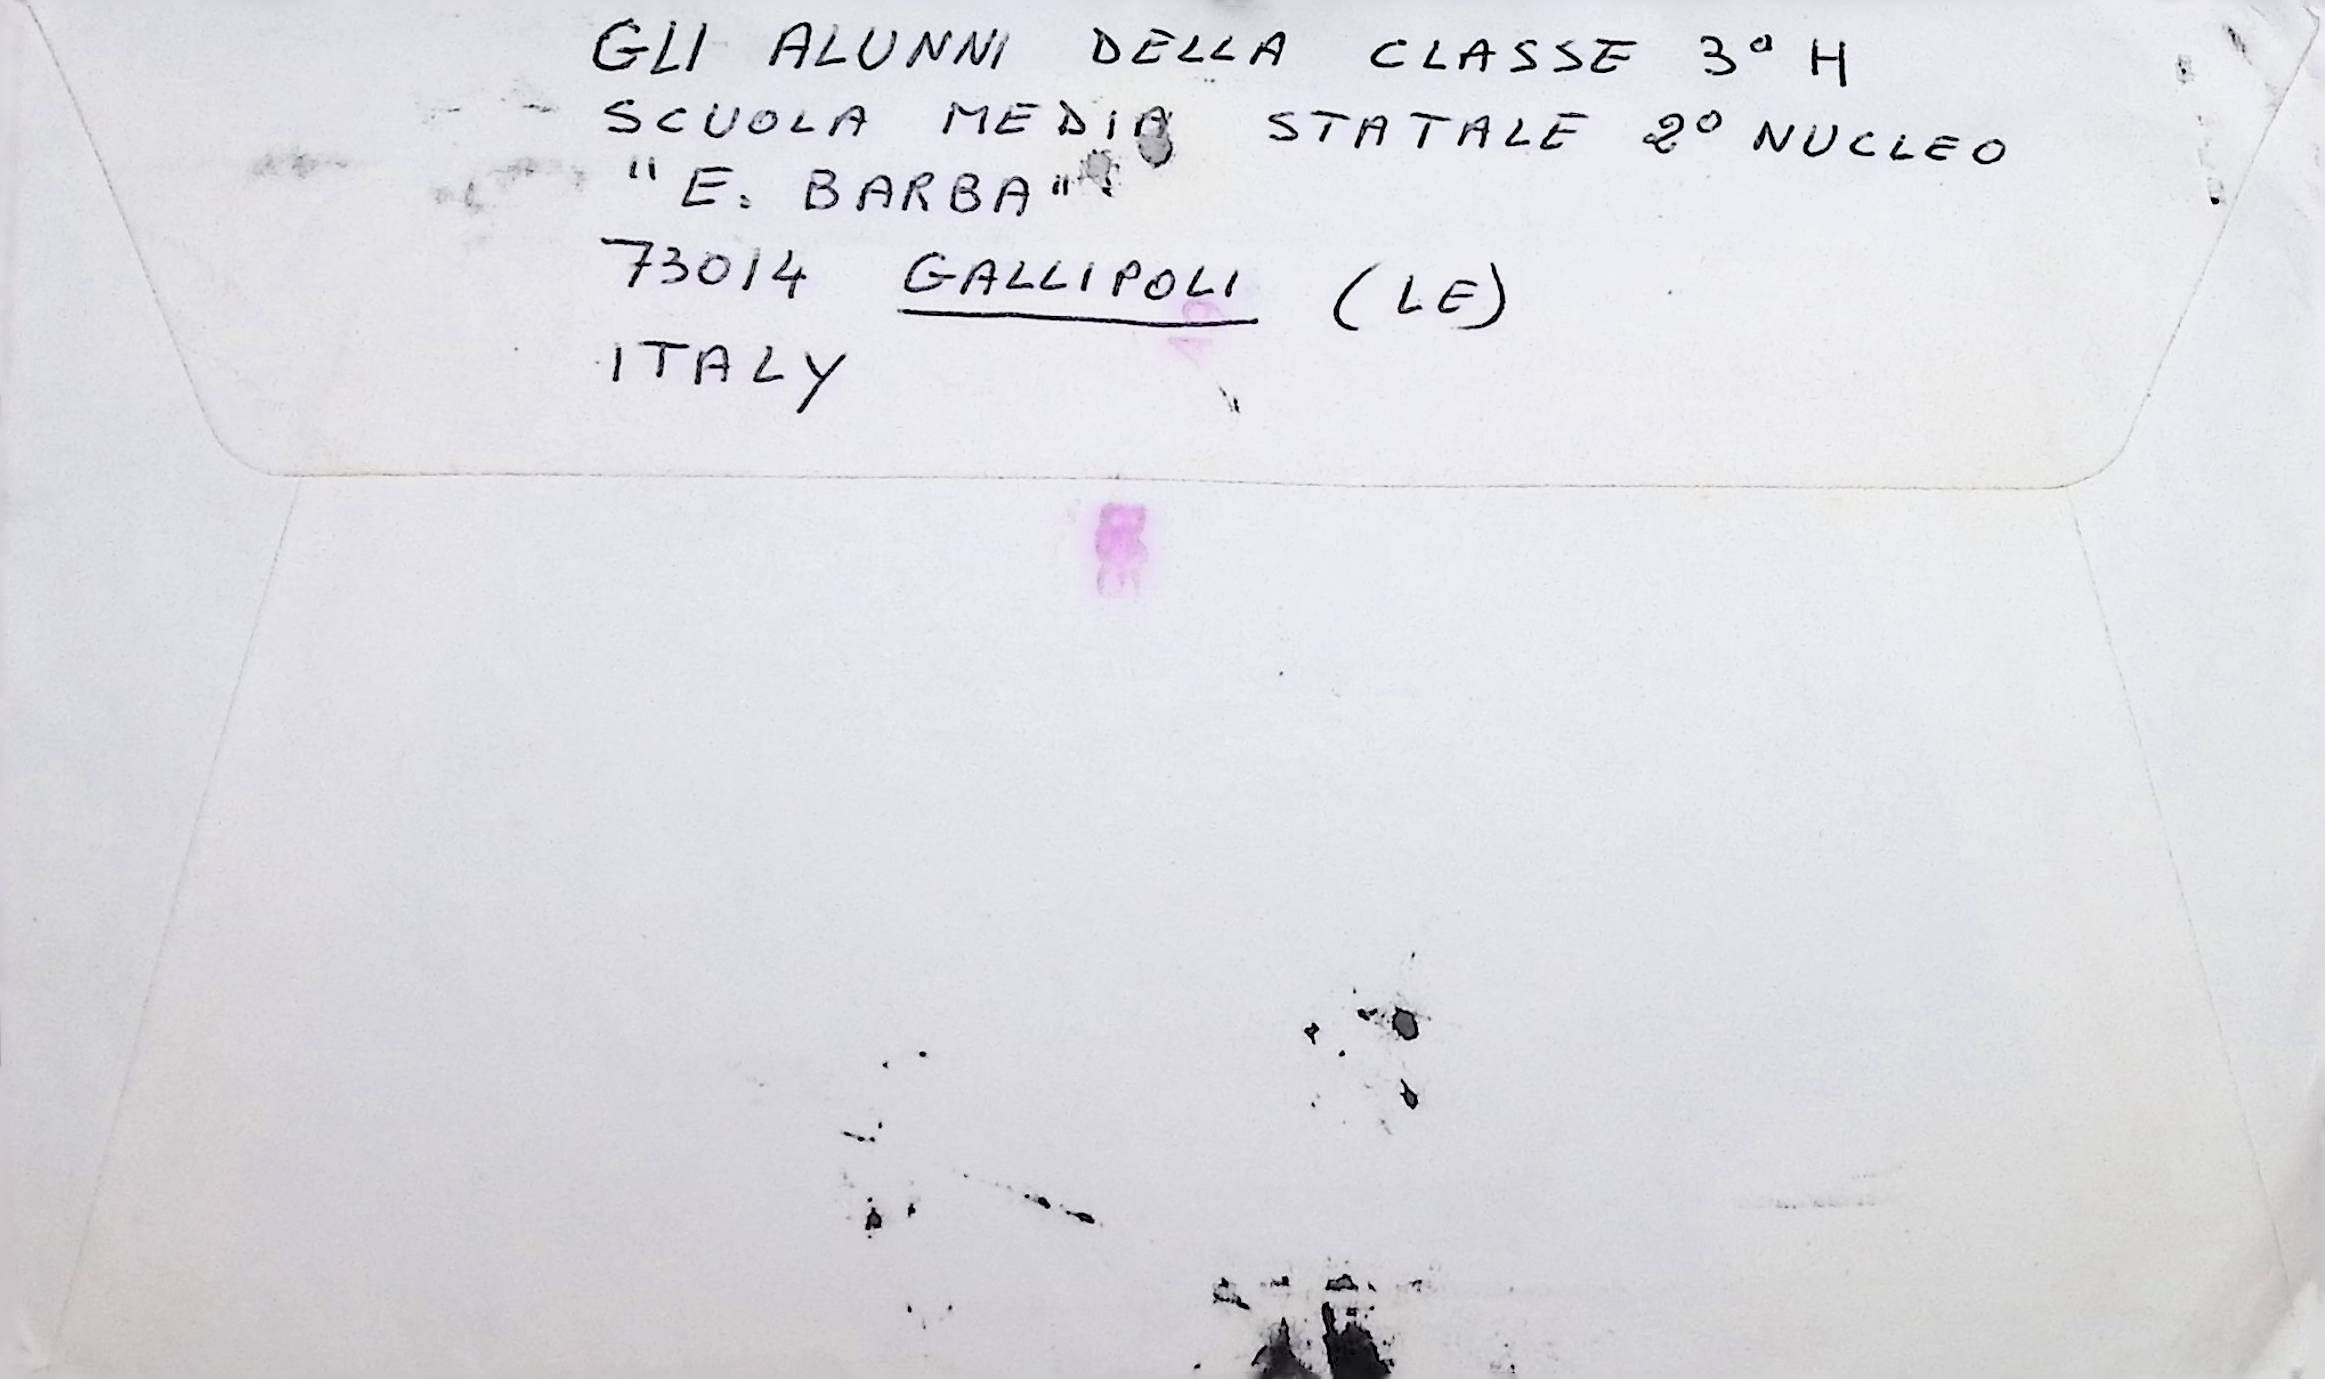 GLI ALUNNI DELLA CLASSE 3° H
SCUOLA MEDIA STATALE 2° NUCLEO
"E. BARBA"
73014 GALLIPOLI (LE)
ITALY